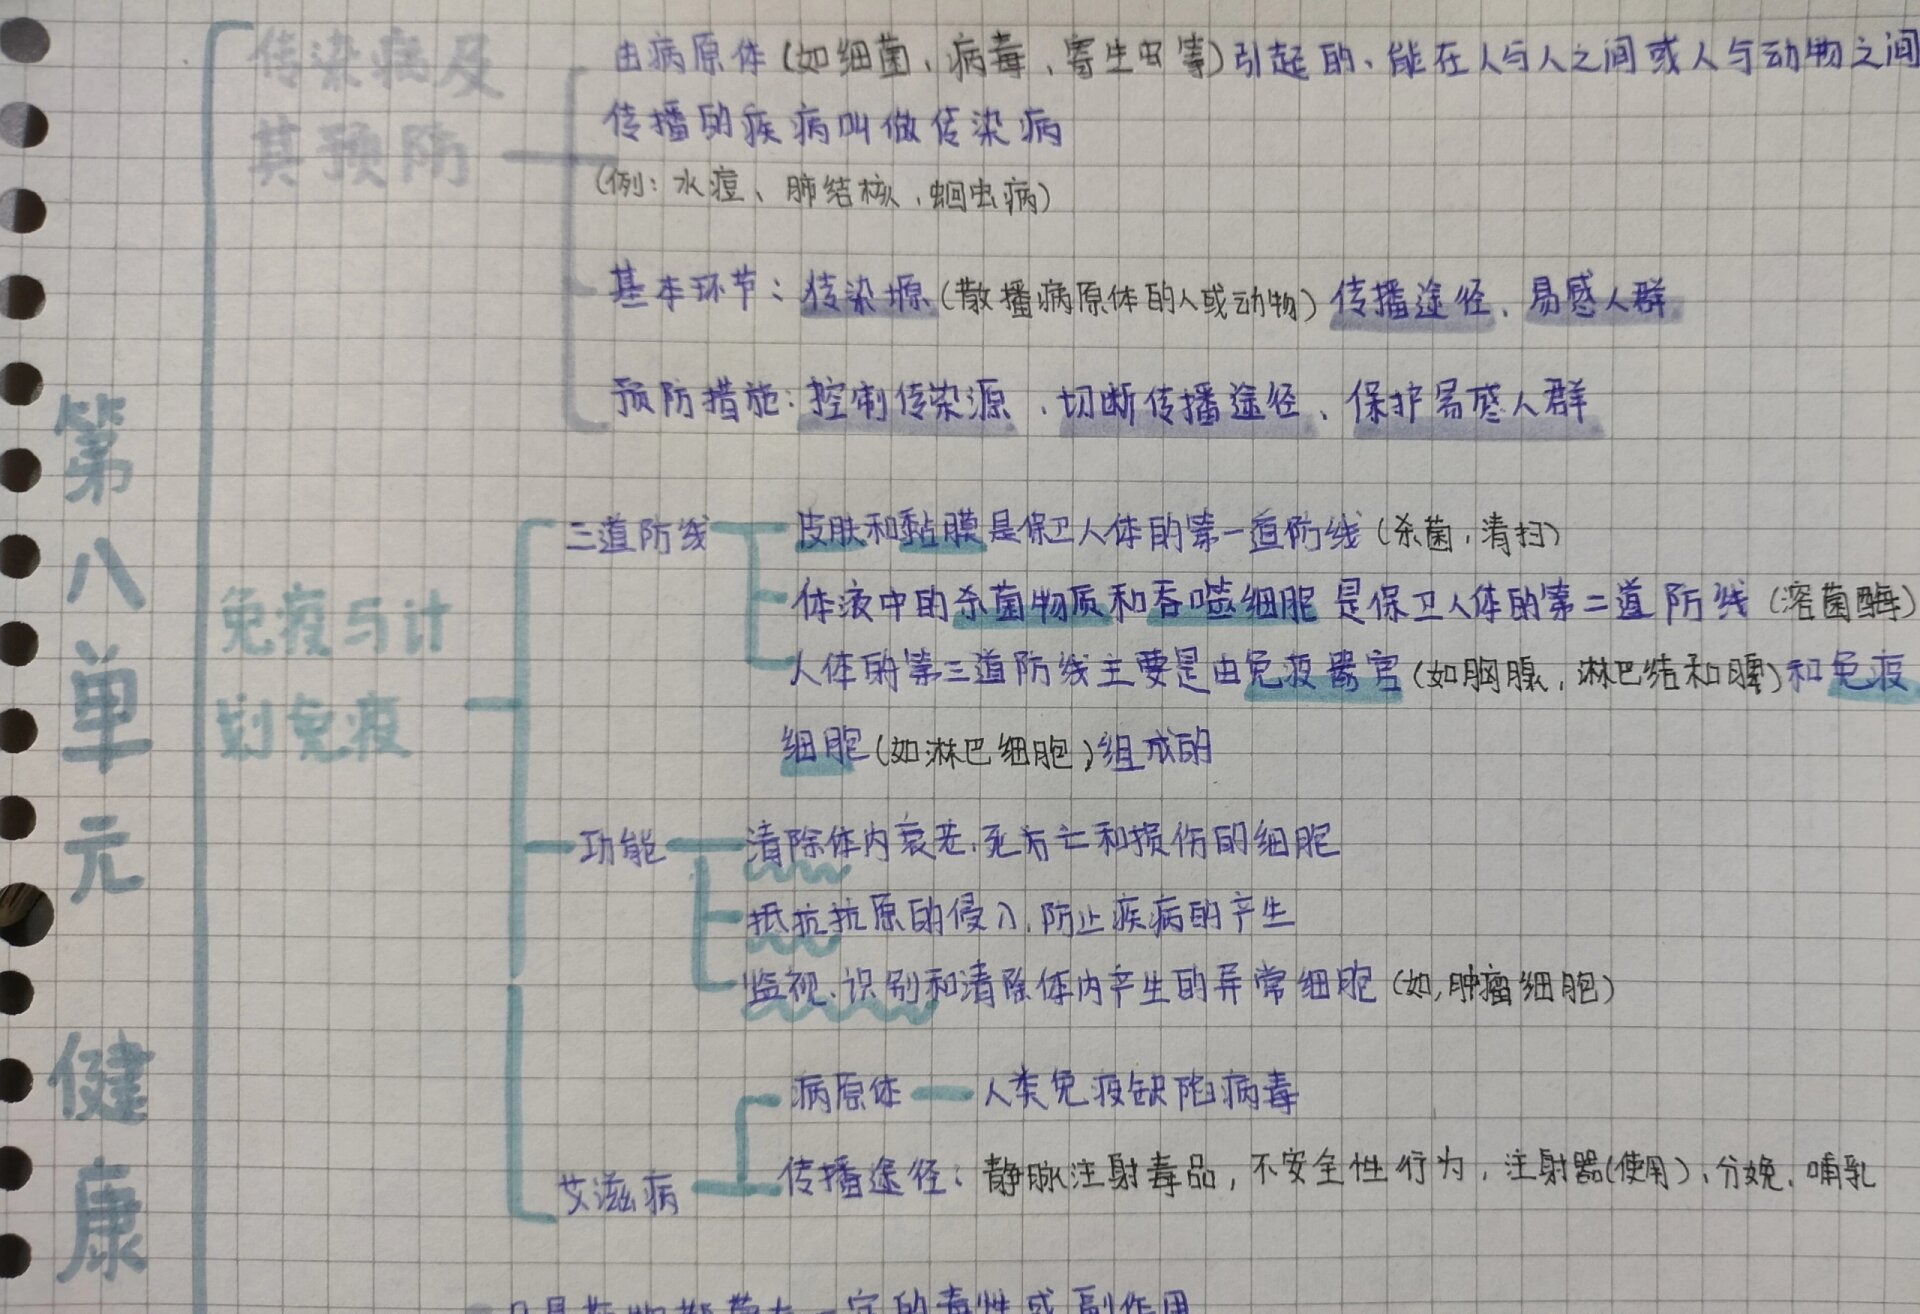 第八单元 健康
传染病及
其预防
由病原体(如细菌、病毒、寄生虫等)引起的、能在人与人之间或人与动物之间
传播的疾病叫做传染病
(例:水痘、肺结核、蛔虫病)
基本环节:传染源(散播病原体的人或动物)传播途径、易感人群
预防措施:控制传染源、切断传播途径、保护易感人群
免疫与计
划免疫
三道防线
皮肤和黏膜是保卫人体的第一道防线(杀菌,清扫)
体液中的杀菌物质和吞噬细胞是保卫人体的第二道防线(溶菌酶)
人体的第三道防线主要是由免疫器官(如胸腺,淋巴结和脾)和免疫
细胞(如淋巴细胞)组成的
功能
清除体内衰老、死亡和损伤的细胞
抵抗抗原的侵入,防止疾病的产生
监视、识别和清除体内产生的异常细胞(如,肿瘤细胞)
艾滋病
病原体 — 人类免疫缺陷病毒
传播途径:静脉注射毒品,不安全性行为,注射器(使用)、分娩、哺乳
一定的毒性或副作用